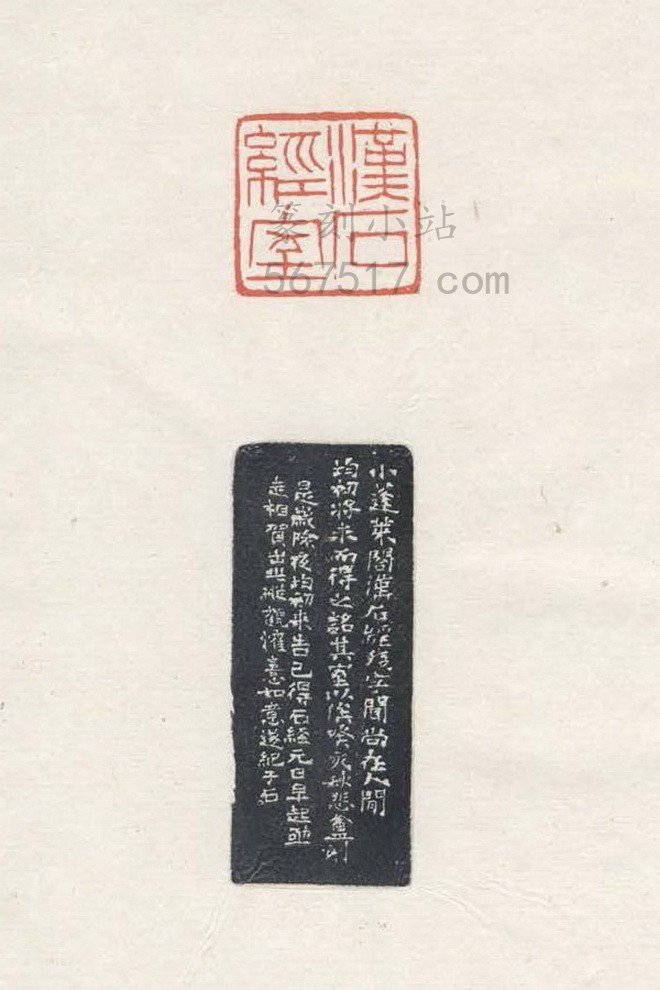 漢石
經室
篆刻小站
567517.com
小蓬萊閣漢石經殘字聞尚在人間
均初將求而得之銘其室以俟癸亥秋悲盦刻
是歲除夜均初來告已得石經元日早起亟
走相賀出此縱觀濯意如意遂紀于石